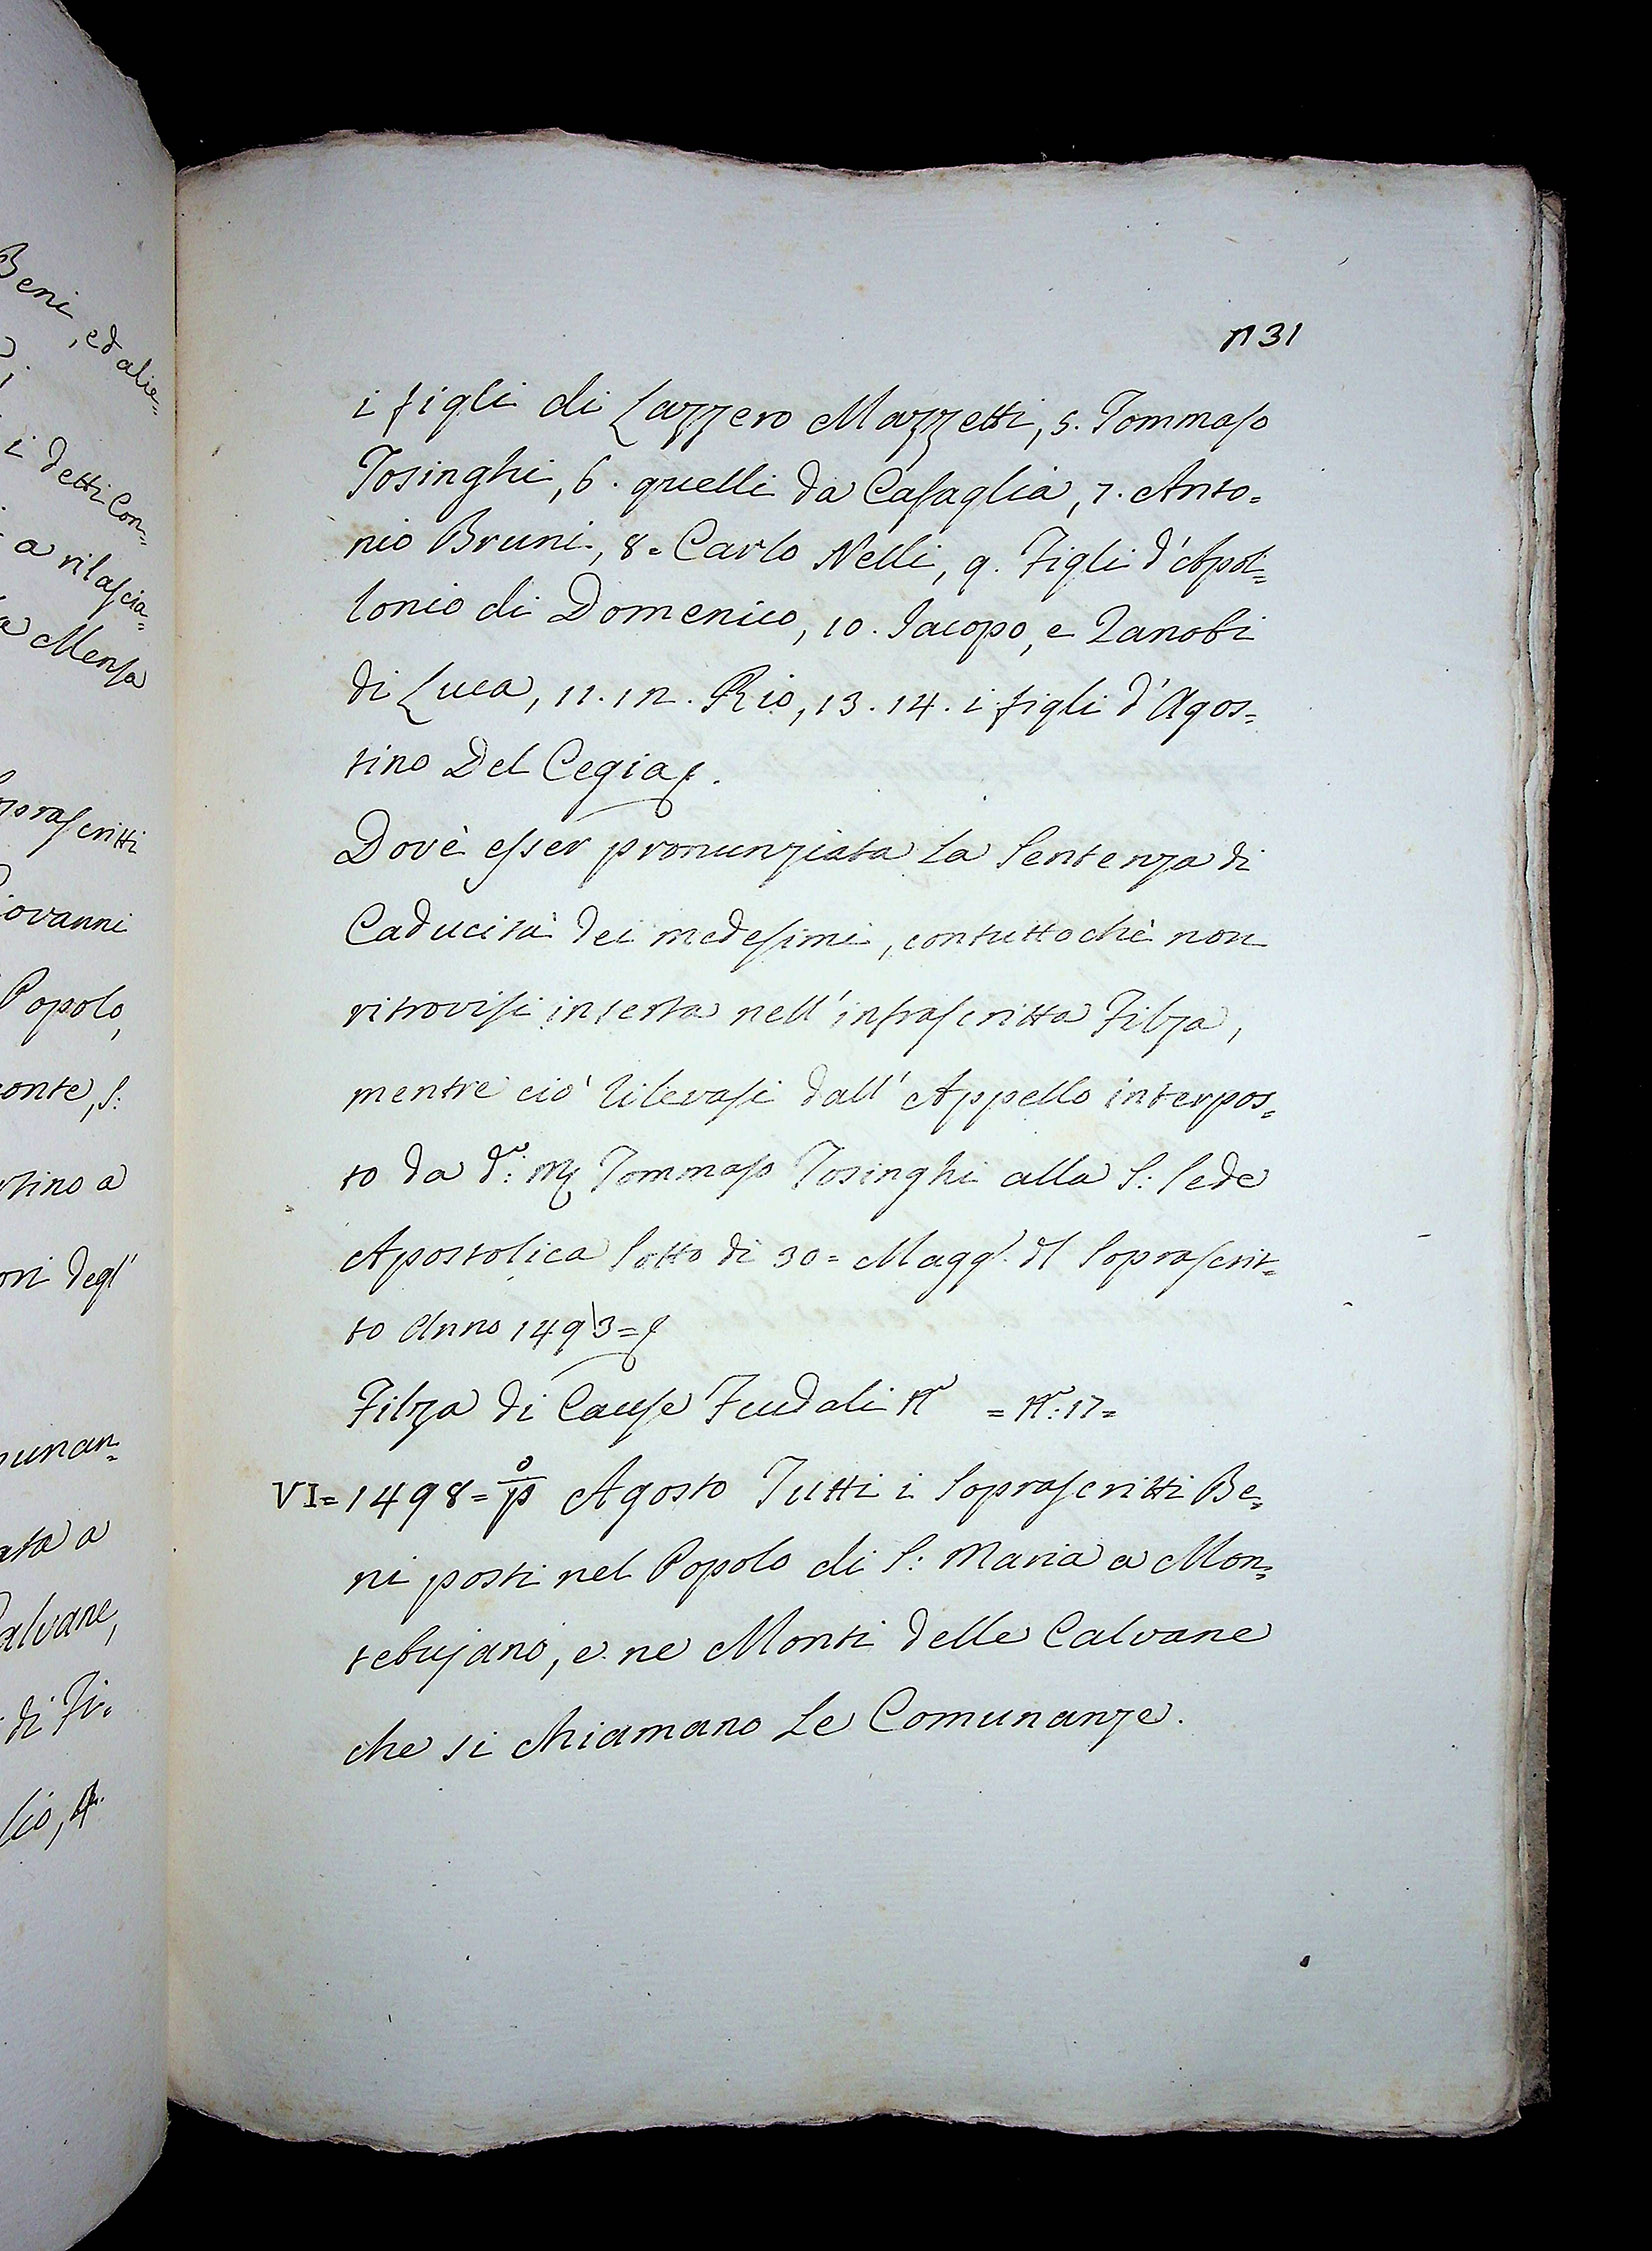 Beni, ed alie=
i detti Con=
a rilascia=
Mensa
soprascritti
Giovanni
Popolo,
onte, S:
rtino a
ori degl'
munan=
ata a
Calvane,
di Fi=
lio, 4.
231
i figli di Lazzero Mazzetti, 5. Tommaso
Tosinghi, 6. quelli da Casaglia, 7. Anto=
nio Bruni, 8= Carlo Nelli, 9. Figli d'Apol=
lonio di Domenico, 10. Iacopo, e Zanobi
di Luca, 11. 12. Rio, 13. 14. i figli d'Agos=
tino Del Cegia.
Dovè esser pronunziata la Sentenza di
Caducità dei medesimi, contuttochè non
ritrovisi inserta nell'infrascritta Filza,
mentre ciò rilevasi dall'Appello interpos=
to da d.o Tommaso Tosinghi alla S: Sede
Apostolica sotto di 30= Magg.o d'l soprascrit=
to Anno 1493=
Filza di Cause Feudali N.o =N.o: 17=
VI= 1498= p.o Agosto Tutti i soprascritti Be=
ni posti nel Popolo di S: Maria a Mon=
tebujano, e ne Monti delle Calvane
che si chiamano Le Comunanze.